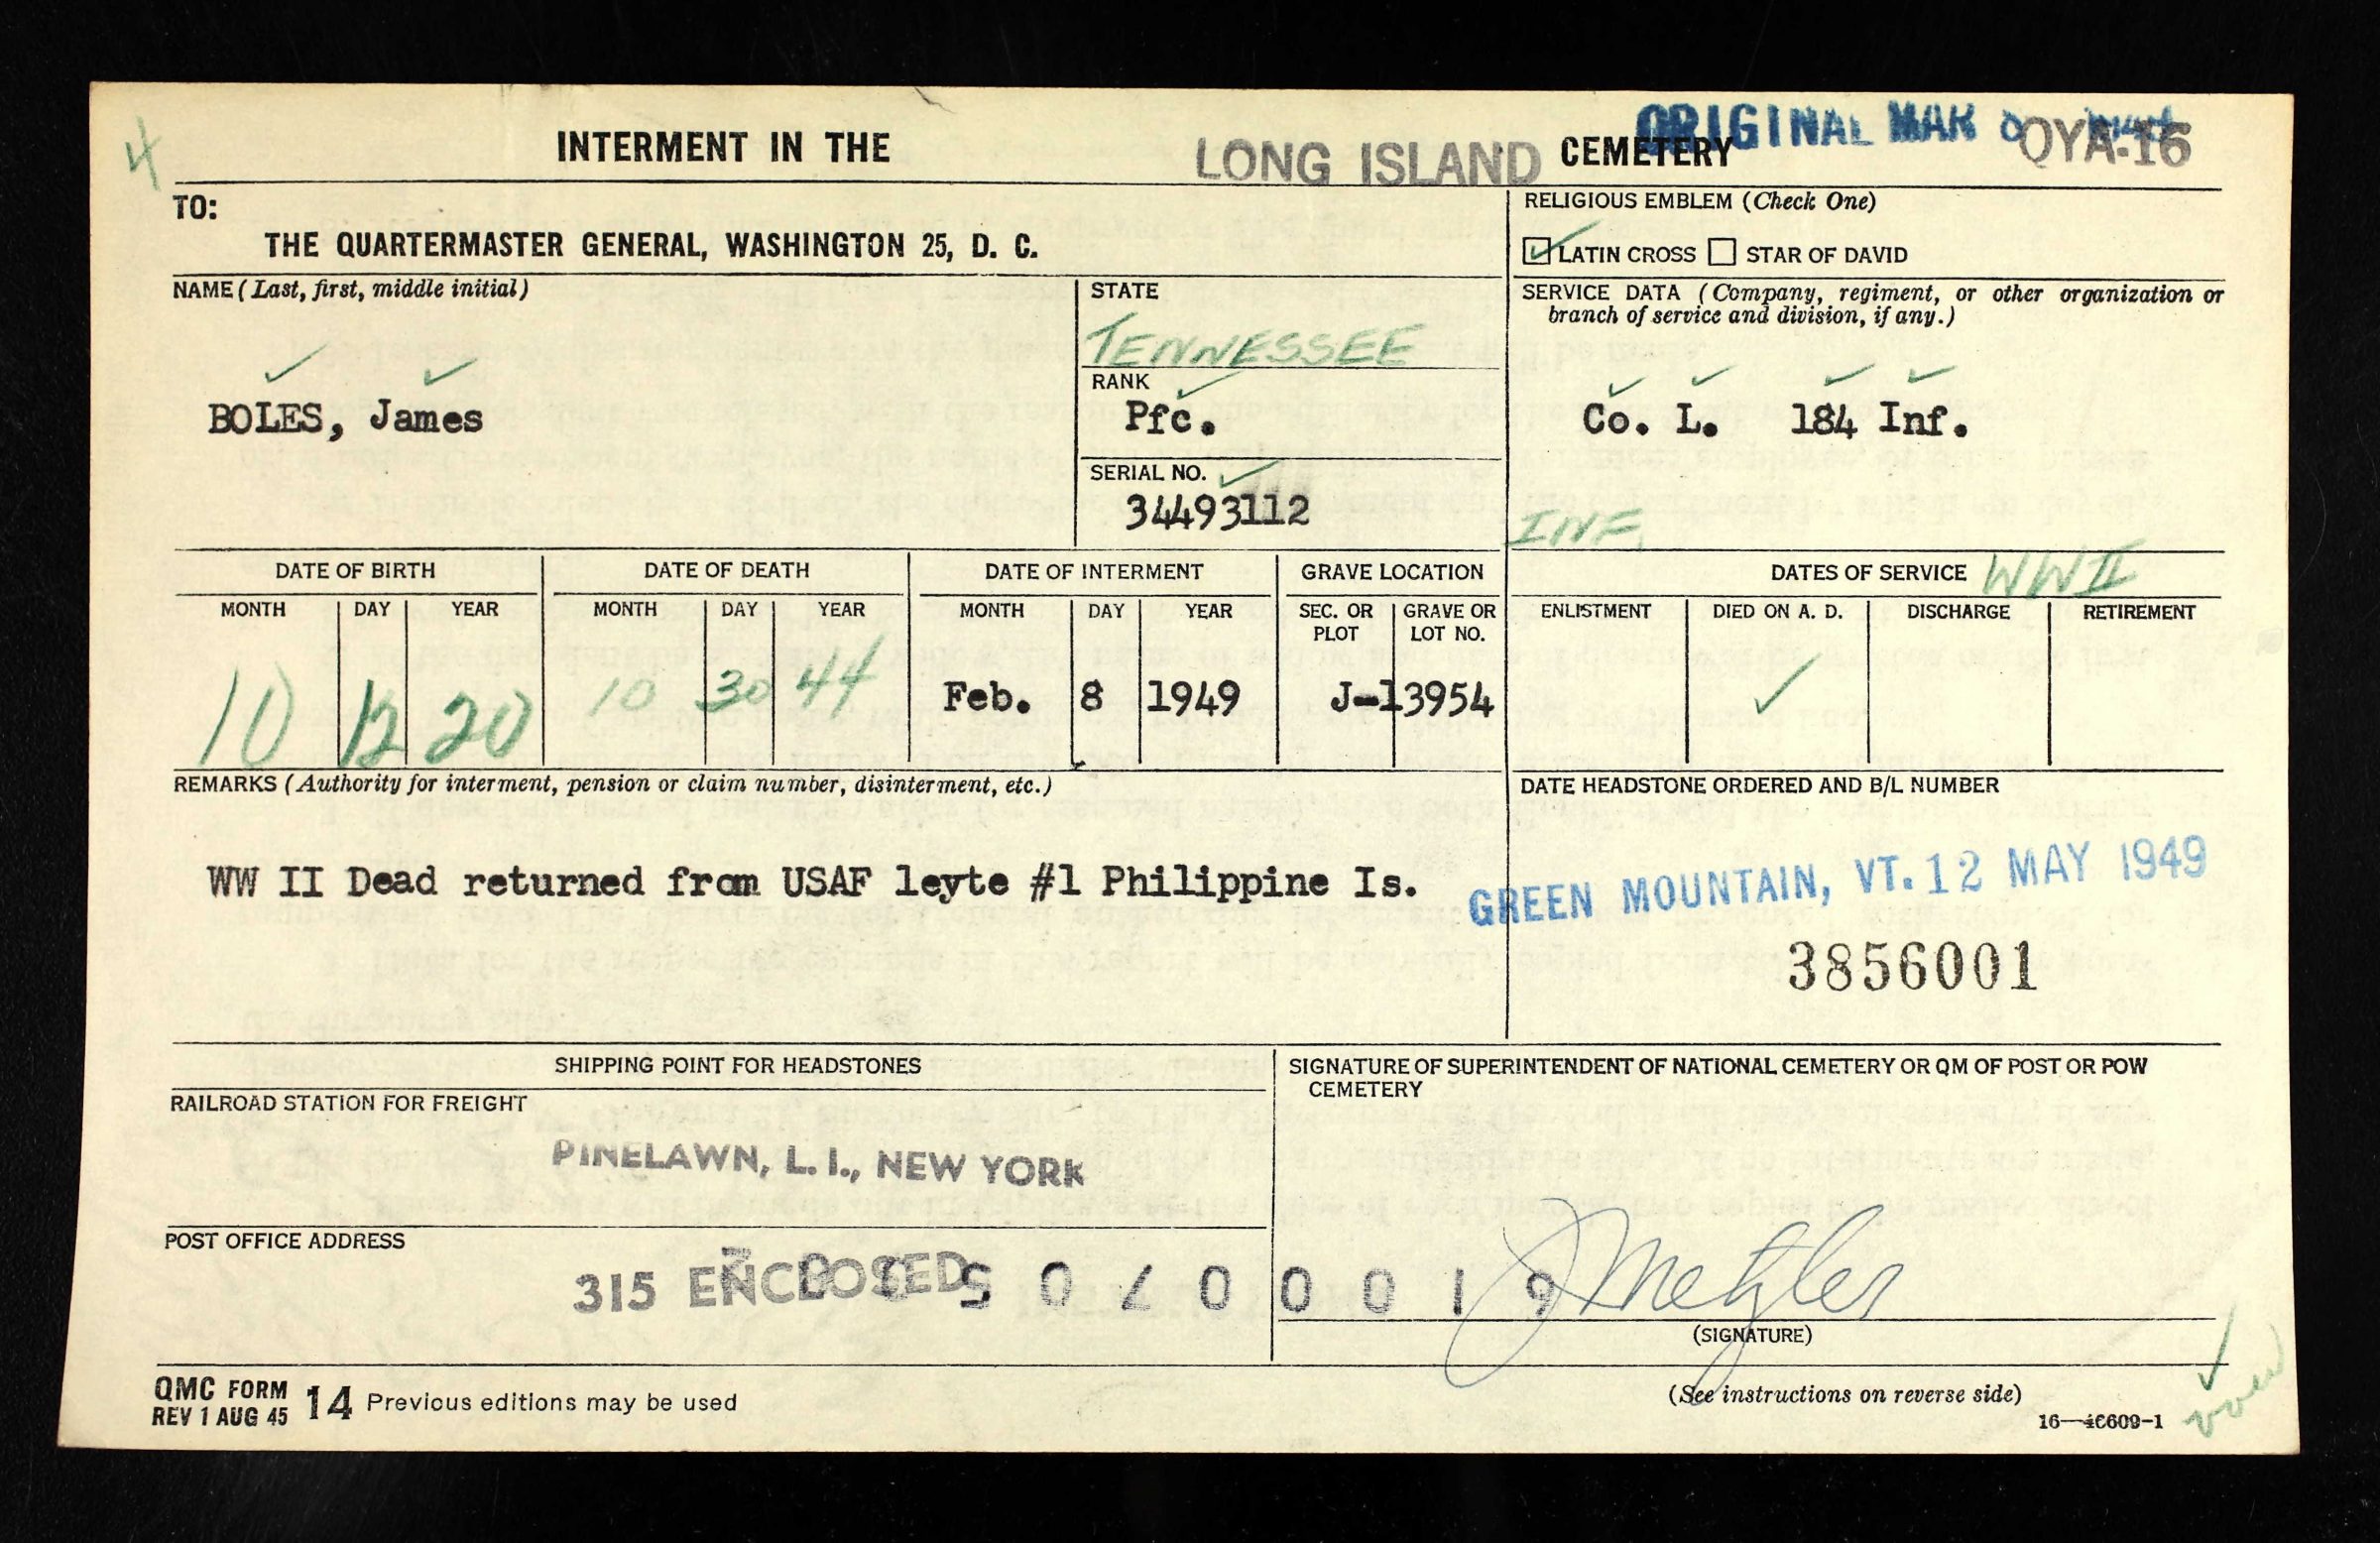 4
ORIGINAL MAR
INTERMENT IN THE LONG ISLAND CEMETERY QYA-16
TO:
THE QUARTERMASTER GENERAL, WASHINGTON 25, D. C.
RELIGIOUS EMBLEM (Check One)
LATIN CROSS STAR OF DAVID
NAME (Last, first, middle initial)
BOLES, James
STATE
TENNESSEE
RANK
Pfc.
SERIAL NO.
34493112
SERVICE DATA (Company, regiment, or other organization or
branch of service and division, if any.)
Co. L. 184 Inf.
INF.
DATE OF BIRTH DATE OF DEATH DATE OF INTERMENT GRAVE LOCATION DATES OF SERVICE WW II
MONTH DAY YEAR MONTH DAY YEAR MONTH DAY YEAR SEC. OR PLOT GRAVE OR LOT NO. ENLISTMENT DIED ON A. D. DISCHARGE RETIREMENT
10 12 20 10 30 44 Feb. 8 1949 J-13954
REMARKS (Authority for interment, pension or claim number, disinterment, etc.)
WW II Dead returned from USAF leyte #1 Philippine Is.
DATE HEADSTONE ORDERED AND B/L NUMBER
GREEN MOUNTAIN, VT. 12 MAY 1949
3856001
SHIPPING POINT FOR HEADSTONES
RAILROAD STATION FOR FREIGHT
PINELAWN, L. I., NEW YORK
POST OFFICE ADDRESS
315 ENCLOSED
SIGNATURE OF SUPERINTENDENT OF NATIONAL CEMETERY OR QM OF POST OR POW
CEMETERY
J Metzler
(SIGNATURE)
QMC FORM 14 Previous editions may be used
REV 1 AUG 45
(See instructions on reverse side)
16—46609-1
over